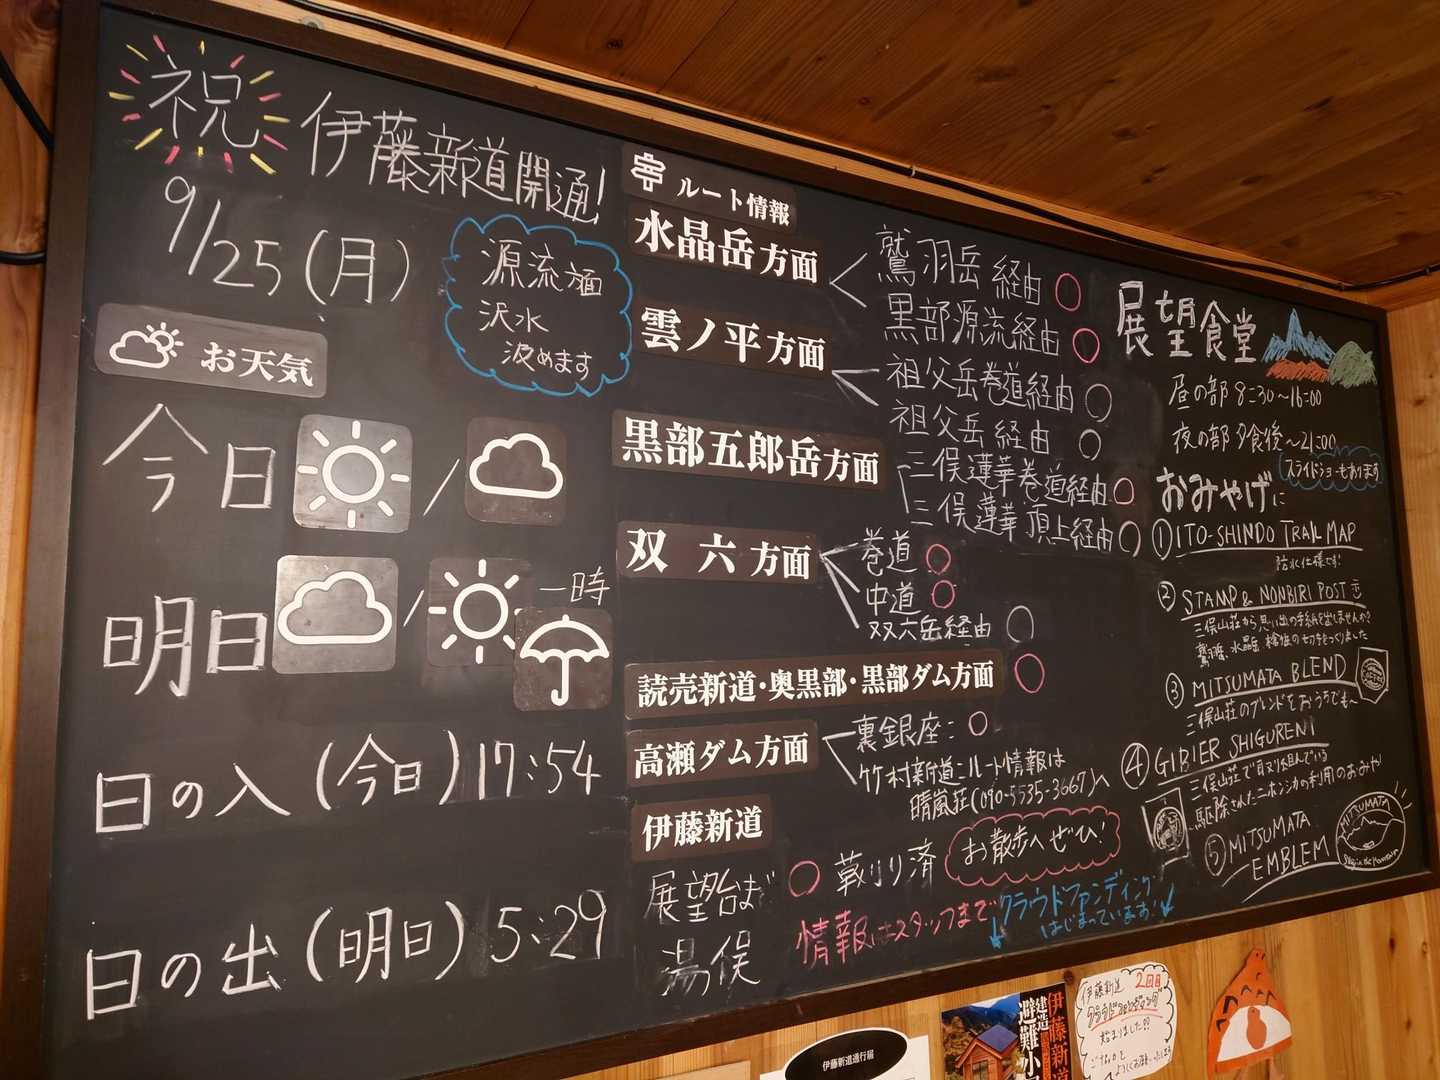 祝 伊藤新道開通!
9/25(月)
源流方面
沢水
汲めます
お天気
今日 /
明日 / 一時
日の入(今日)17:54
日の出(明日)5:29
ルート情報
水晶岳方面
鷲羽岳経由○
黒部源流経由○
雲ノ平方面
祖父岳巻道経由○
祖父岳経由○
黒部五郎岳方面
三俣蓮華巻道経由○
三俣蓮華頂上経由○
双六方面
巻道○
中道○
双六岳経由○
読売新道・奥黒部・黒部ダム方面○
高瀬ダム方面
裏銀座:○
竹村新道:ルート情報は
晴嵐荘(090-5535-3667)へ
伊藤新道
展望台まで○草刈り済
お散歩へぜひ!
湯俣 情報はスタッフまで
クラウドファンディング
はじまっています!
展望食堂
昼の部 8:30〜16:00
夜の部 夕食後〜21:00
スライドショーもあります
おみやげに
①ITO-SHINDO TRAIL MAP
防水仕様です!
②STAMP & NONBIRI POST
三俣山荘から思い出の手紙を出しませんか?
③MITSUMATA BLEND
三俣山荘のブレンドをおうちでも〜
④GIBIER SHIGURENI
三俣山荘で取り組んでいる
駆除されたニホンジカの利用のおみや
⑤MITSUMATA
EMBLEM
MITSUMATA
伊藤新道通行届
伊藤新道
建造
避難小
伊藤新道 2回目
クラウドファンディング
始まりました!!